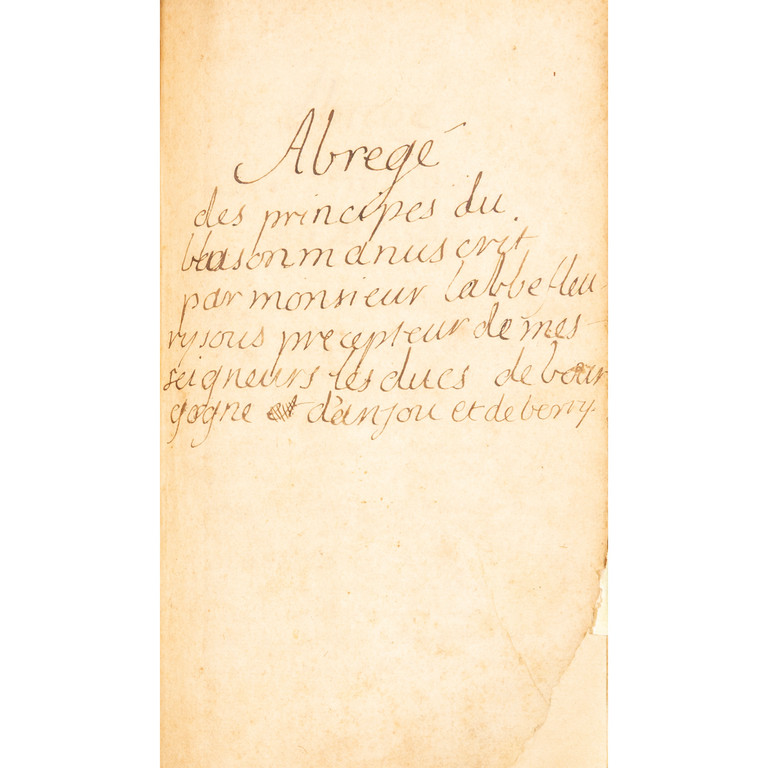 Abregé
des principes du
blason manuscrit
par monsieur labbe fleu-
ry sous precepteur de mes-
seigneurs les ducs de bour
gogne d'anjou et de berry.